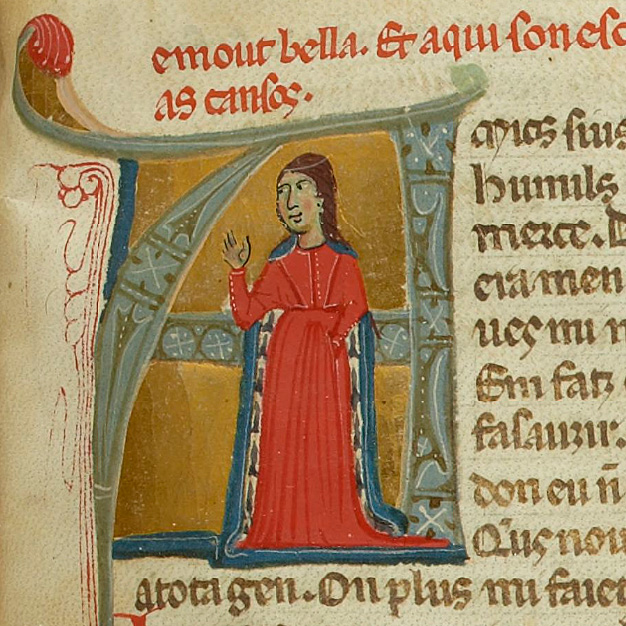 emout bella. Et aqui son esc
as cansos.
Amics sius
humils
merce. B
era men
ues mi
Em fatz
fasauzir.
don eu n̄
Qus nou
atota gen. On plus mi faiet